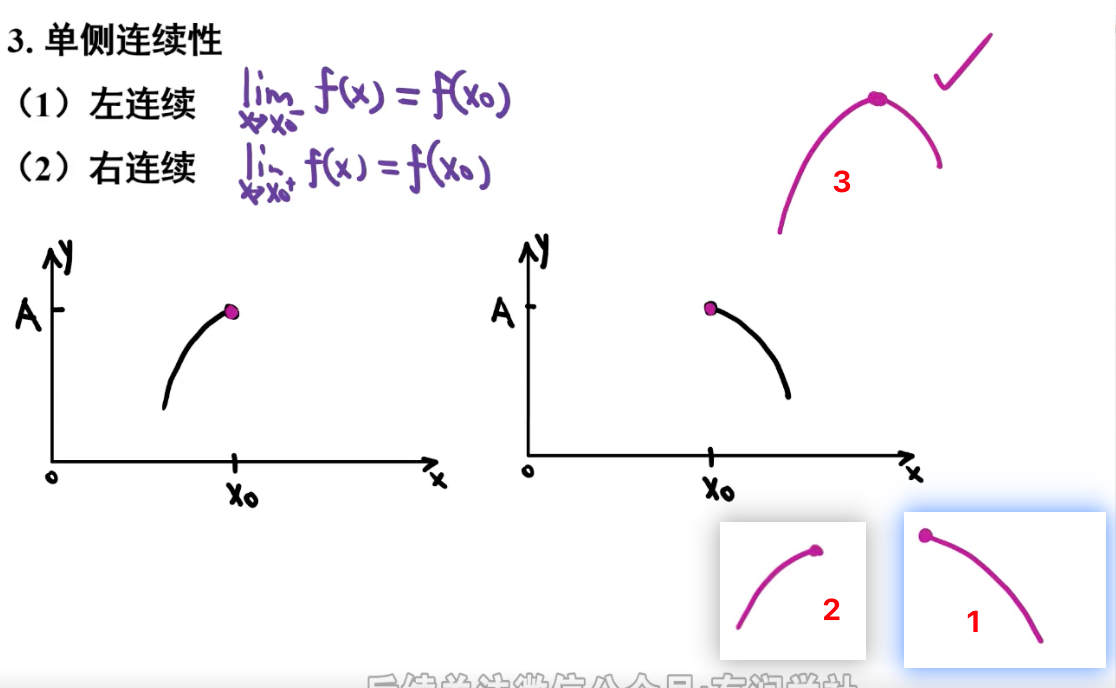 3. 单侧连续性
（1）左连续 lim x→x₀⁻ f(x) = f(x₀)
（2）右连续 lim x→x₀⁺ f(x) = f(x₀)
3
y
A
0
x₀
x
y
A
0
x₀
x
2
1